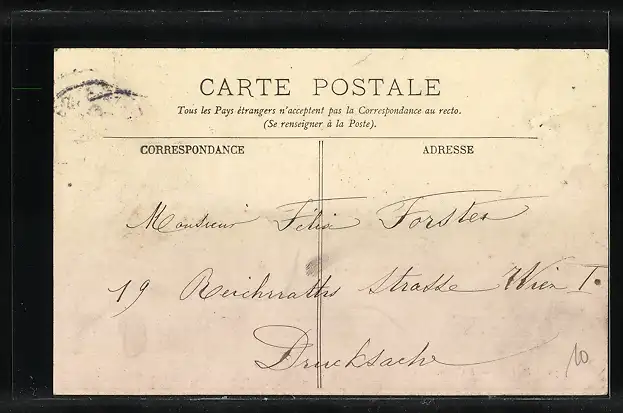 CARTE POSTALE
Tous les Pays étrangers n'acceptent pas la Correspondance au recto.
(Se renseigner à la Poste).
CORRESPONDANCE ADRESSE
Monsieur Félix Forster
19 Reichsraths Strasse Wien I.
Drucksache
10